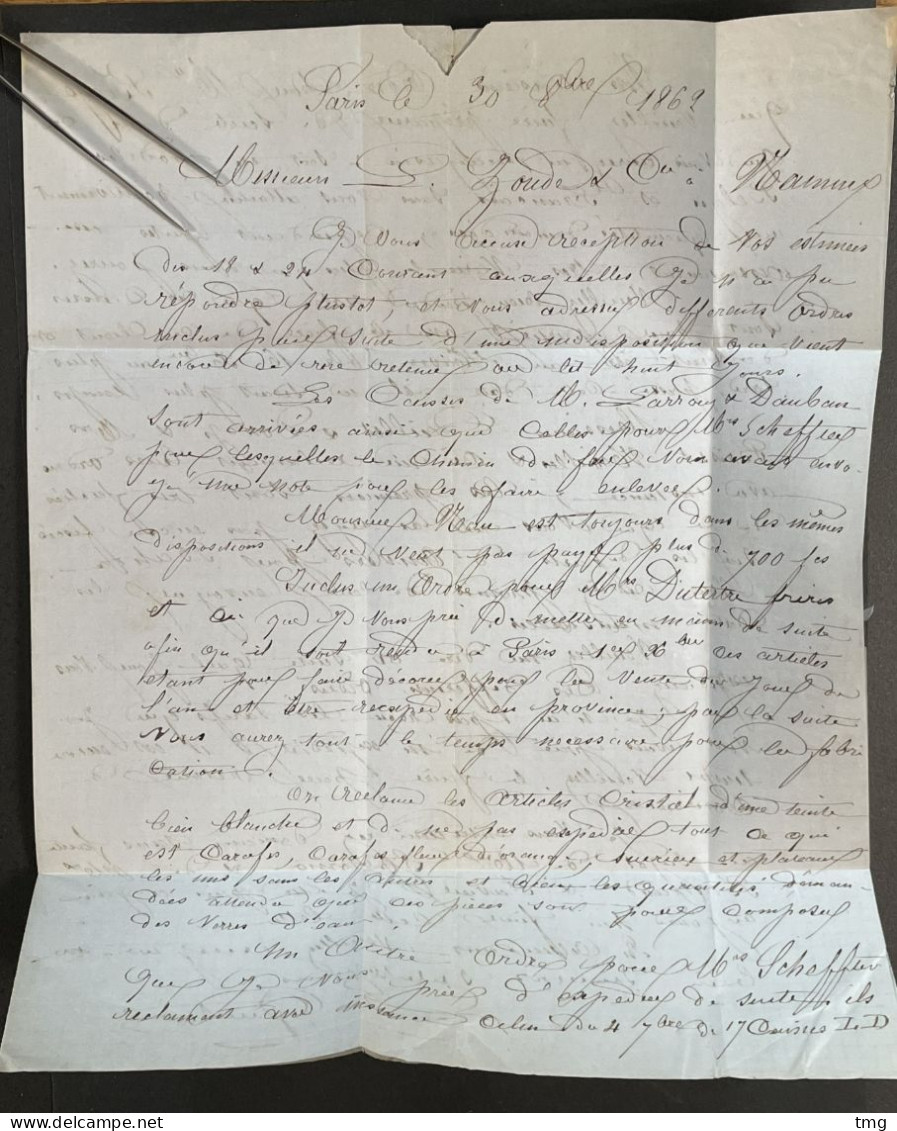 Paris le 30 8bre 1869
Messieurs L. Zoude & Cie à Namur
Je Vous accuse réception de Vos estimées
des 18 & 24 Courant auxquelles je n'ai pu
répondre plustot, et Vous adresser differents Ordres
inclus par suite d'une indisposition qui vient
encore de me retenir au lit huit jours.
Les Caisses de M. Larrouy & Dauban
sont arrivées ainsi que celles pour Mrs Scheffter
pour lesquelles le Chemin de fer Nous avait envo-
yé une note pour les faire enlever.
Monsieur Nau est toujours dans les mêmes
dispositions il ne veut pas payer plus de 700 fcs
Inclus un Ordre pour Mrs Dutertre frères
et que je Vous prie de mettre en mains de suite
afin qu'il soit rendu à Paris 1er Xbre ces articles
etant pour faire decorer pour la Vente du Jour de
l'an et être reexpedié en province; par la suite
Vous aurez tout le temps necessaire pour la fabri
cation.
On reclame les articles Cristal d'une teinte
bien blanche et de ne pas expedier tout ce qui
est Carafes, Carafes fleur d'orange, sucriers et plateaux
les uns sans les autres et bien les quantités deman-
dées attendu que ces pieces sont pour composer
des Verres d'eau.
Un Autre Ordre pour Mrs Scheffter
que je Vous prie d'expedier de suite, ils
reclament avec instance Celui du 4 7bre de 17 Caisses L D
tmg